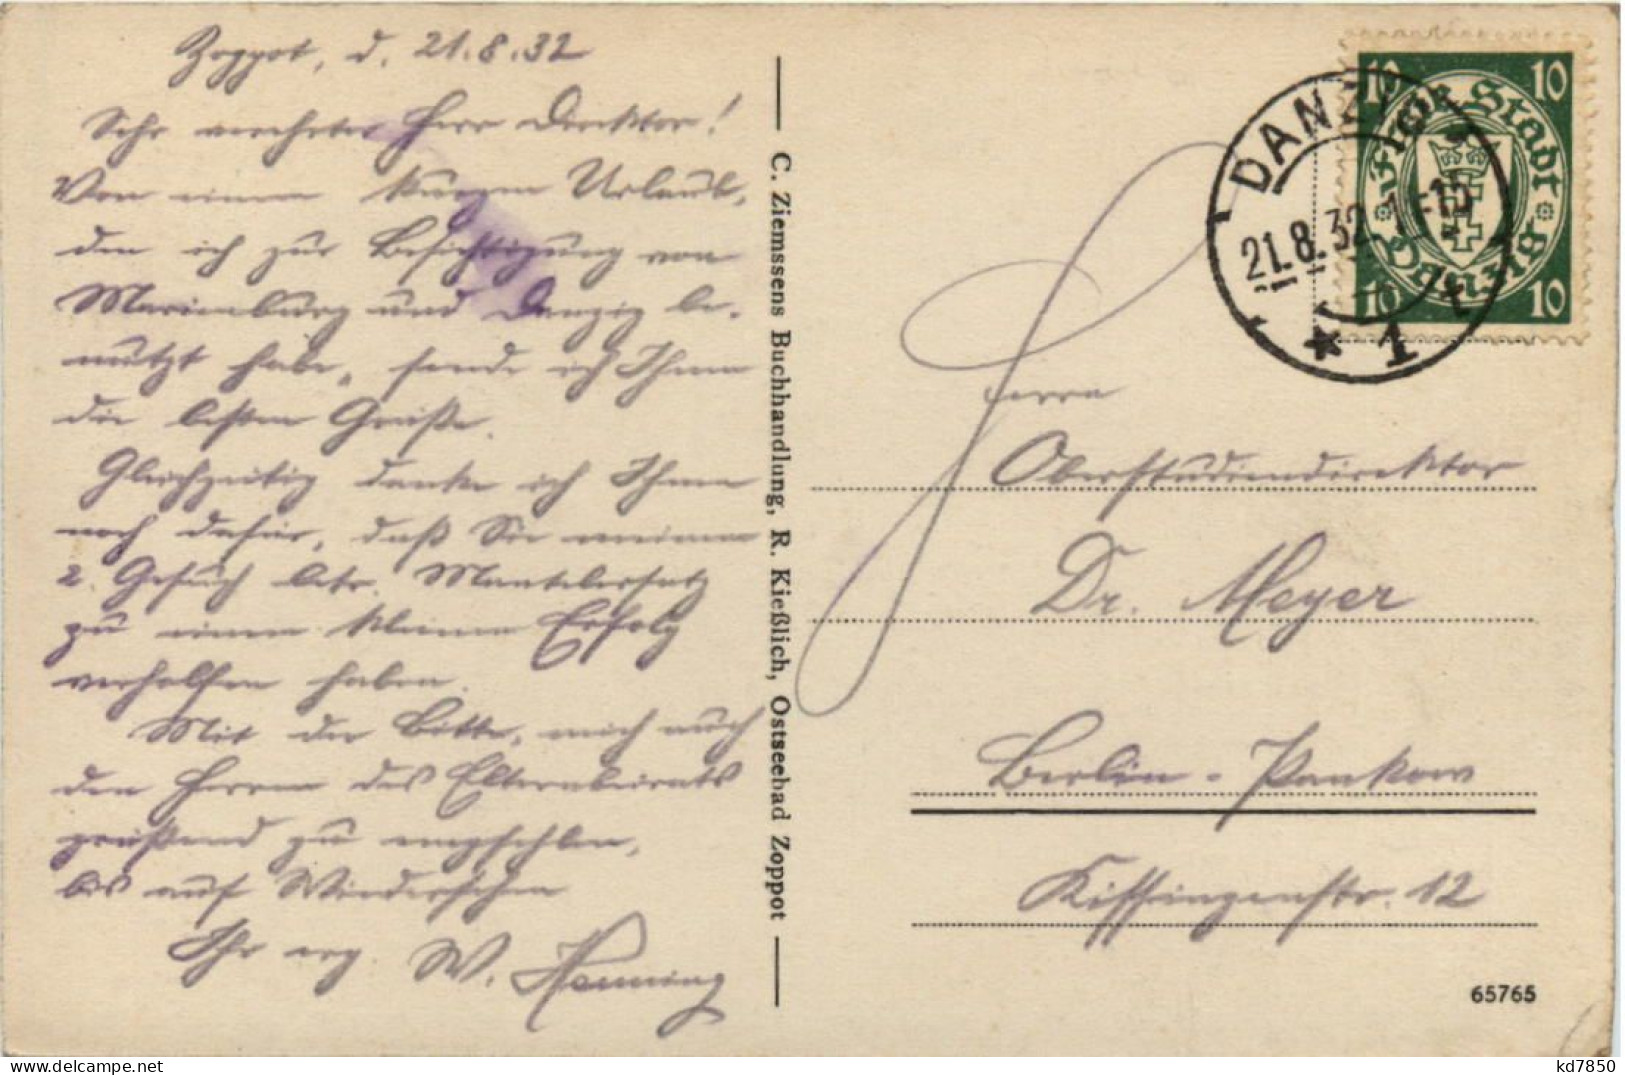 Zoppot, d. 21.8.32
Sehr verehrter Herr Direktor!
Von einem kurzen Urlaub,
den ich zur Besichtigung von
Marienburg und Danzig be-
nutzt habe, sende ich Ihnen
die besten Grüße.
Gleichzeitig danke ich Ihnen
noch dafür, daß Sie meinem
2. Gesuch betr. Mantelersatz
zu einem kleinen Erfolg
verholfen haben.
Mit der Bitte, mich auch
den Herren des Elternbeirats
grüßend zu empfehlen,
bis auf Wiedersehen
Ihr erg. W. Henning
C. Ziemssens Buchhandlung, R. Kießlich, Ostseebad Zoppot
10 10
Freie Stadt Danzig
10 10
DANZIG
21.8.32
* 1
Herrn
Oberstudiendirektor
Dr. Meyer
Berlin-Pankow
Kissingenstr. 12
65765
http://www.delcampe.net
kd7850